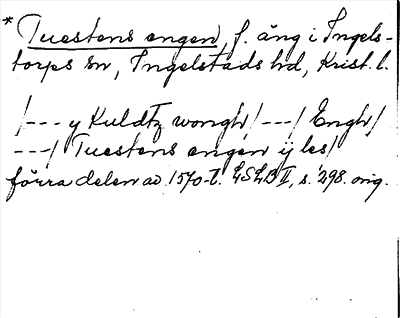 * Tuestens engen, f. äng i Ingels-
torps sn, Ingelstads hd, Krist. l.
/--- y Kuldtz wongh/---/ Engh/
---/ Tuestens engen ij les/
förra delen av 1570-t. LSLB II, s. 298. orig.